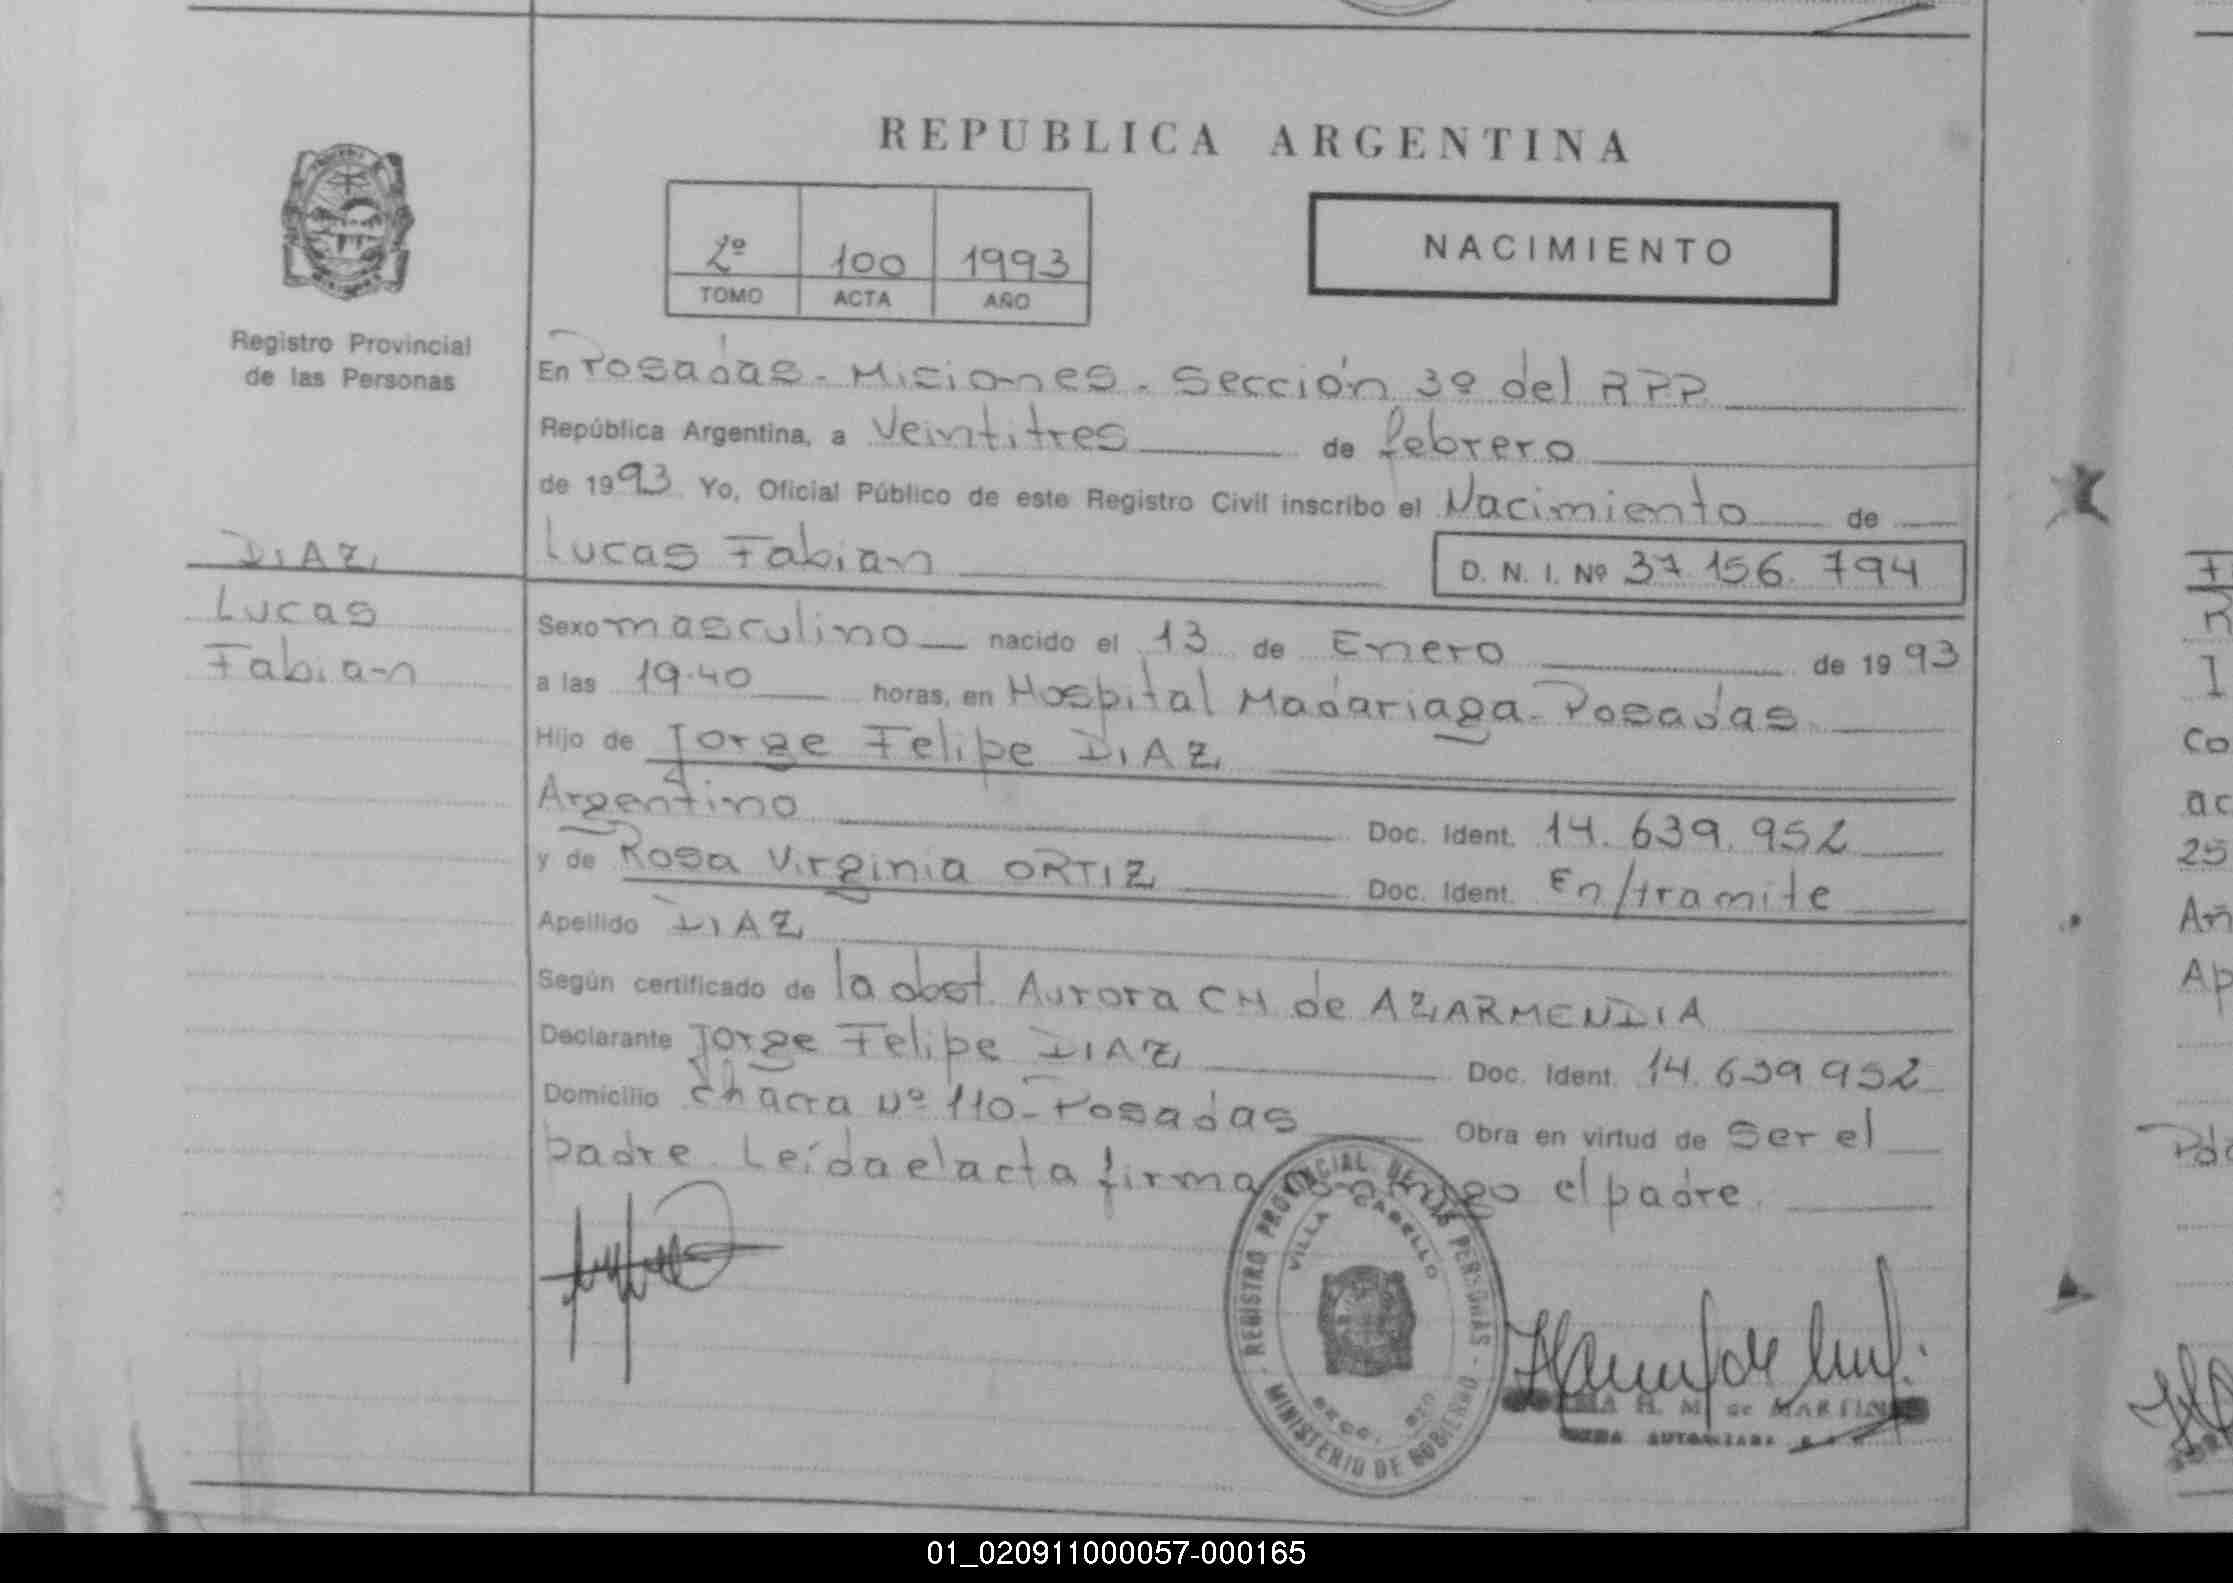 REPUBLICA ARGENTINA
2º 100 1993
TOMO ACTA AÑO
NACIMIENTO
Registro Provincial
de las Personas
En Posadas - Misiones - Sección 3º del RPP
República Argentina, a Veintitres de febrero
de 1993 Yo, Oficial Público de este Registro Civil inscribo el Nacimiento de
Lucas Fabian D. N. I. Nº 37.156.794
DIAZ
Lucas
Fabian
Sexo masculino nacido el 13 de Enero de 1993
a las 19.40 horas, en Hospital Madariaga - Posadas
Hijo de Jorge Felipe DIAZ
Argentino Doc. Ident. 14.639.952
y de Rosa Virginia ORTIZ Doc. Ident. En/tramite
Apellido DIAZ
Según certificado de la obst. Aurora CH de AZARMENDIA
Declarante Jorge Felipe DIAZ Doc. Ident. 14.639952
Domicilio Chacra Nº 110 - Posadas Obra en virtud de Ser el
padre. Leída el acta firma conmigo el padre.
REGISTRO PROVINCIAL DE LAS PERSONAS
VILLA CABELLO
MINISTERIO DE GOBIERNO
H. M. de
01_020911000057-000165